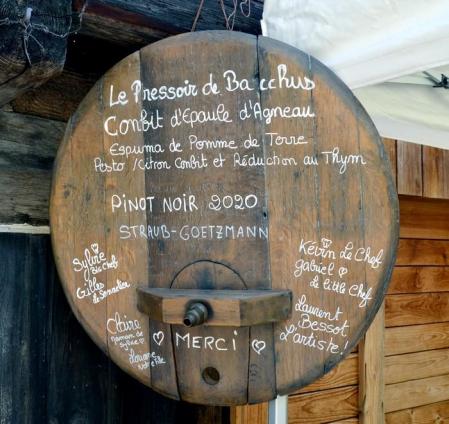 Le Pressoir de Bacchus
Confit d'Epaule d'Agneau
Espuma de Pomme de Terre
Pesto / Citron Confit et Réduction au Thym
PINOT NOIR 2020
STRAUB-GOETZMANN
Sylvie
Big Chef
Gilles
le Sommelier
Claire
Maman de
Sylvie
Louane
Notre fille
MERCI
Kévin Le Chef
Gabriel
le little Chef
Laurent
Bessot
L'artiste!